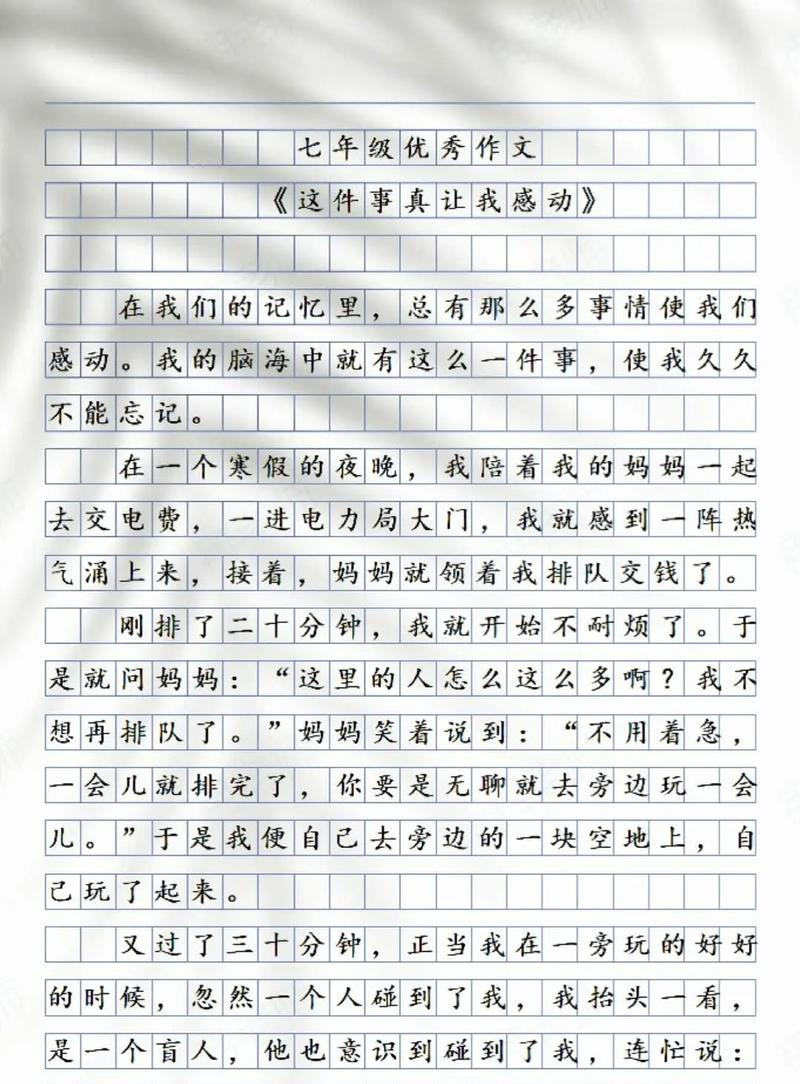 七年级优秀作文
《这件事真让我感动》
在我们的记忆里，总有那么多事情使我们
感动。我的脑海中就有这么一件事，使我久久
不能忘记。
在一个寒假的夜晚，我陪着我的妈妈一起
去交电费，一进电力局大门，我就感到一阵热
气涌上来，接着，妈妈就领着我排队交钱了。
刚排了二十分钟，我就开始不耐烦了。于
是就问妈妈：“这里的人怎么这么多啊？我不
想再排队了。”妈妈笑着说到：“不用着急，
一会儿就排完了，你要是无聊就去旁边玩一会
儿。”于是我便自己去旁边的一块空地上，自
己玩了起来。
又过了三十分钟，正当我在一旁玩的好好
的时候，忽然一个人碰到了我，我抬头一看，
是一个盲人，他也意识到碰到了我，连忙说：